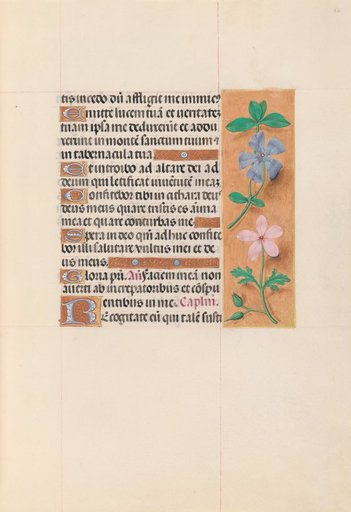 tis incedo dū affligit me inimic9
Emitte lucem tuā et veritatē
tuam ipsa me deduxerūt et addu
xerunt in montē sanctum tuum et
in tabernacula tua.
Et introibo ad altare dei ad
deum qui letificat iuuētutē meā
Confitebor tibi in cithara deus
deus meus quare tristis es aīma
mea et quare conturbas me
Spera in deo qm̄ adhuc confite
bor illi salutare vultus mei et de
us meus.
Gloria pīi. Añ. faciem meā non
auerti ab increpatoribus et cōspu
entibus in me. Caplm̄.
Recogitate eū qui talē susti